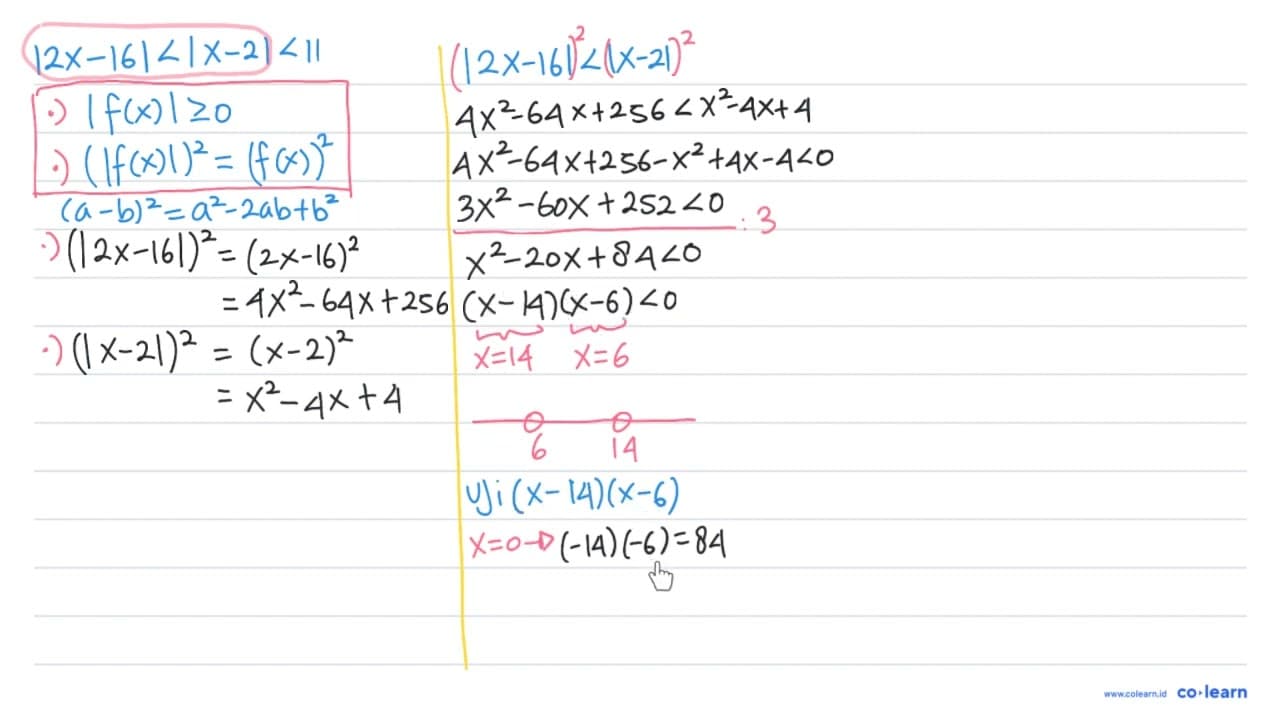 |2x-16|<|x-2|<11
·) |f(x)|≥0
·) (|f(x)|)²=(f(x))²
(a-b)²=a²-2ab+b²
·) (|2x-16|)²=(2x-16)²
=4x²-64x+256
·) (|x-2|)² = (x-2)²
= x²-4x+4
(|2x-16|)²<(|x-2|)²
4x²-64x+256<x²-4x+4
4x²-64x+256-x²+4x-4<0
3x²-60x+252<0 :3
x²-20x+84<0
(x-14)(x-6)<0
x=14 x=6
6 14
Uji (x-14)(x-6)
x=0→(-14)(-6)=84
www.colearn.id co·learn